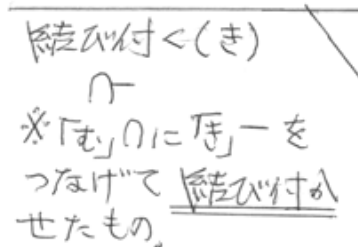 結び付く(き)
∩ー
※「む」∩に「き」ーを
つなげて 結び付か
せたもの。